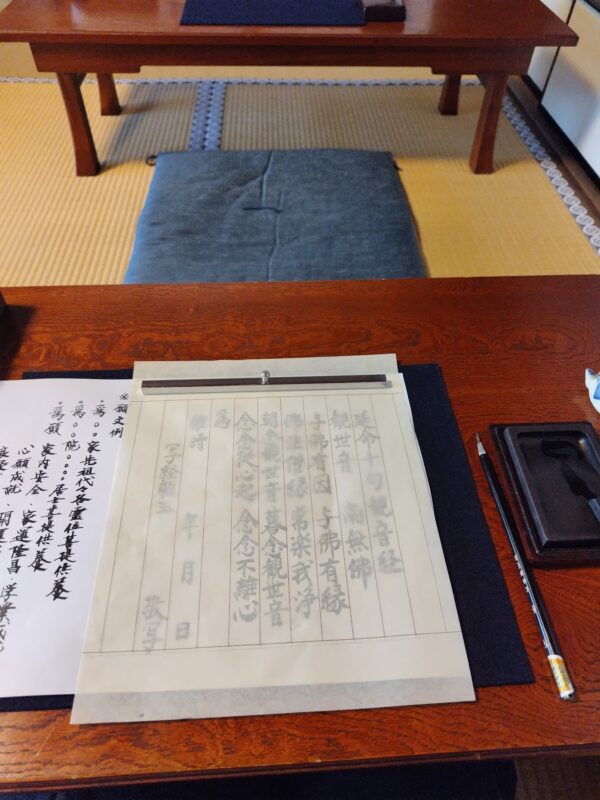 延命十句観音経
観世音 南無佛
与佛有因 与佛有縁
佛法僧縁 常楽我浄
朝念観世音 暮念観世音
念念従心起 念念不離心
為
維時 年 月 日
写経 敬写
※願文例
○為○○家先祖代々各霊位菩提供養
○為○○院○○○○居士菩提供養
○為願 家内安全 家運隆昌
心願成就 開運 学業成